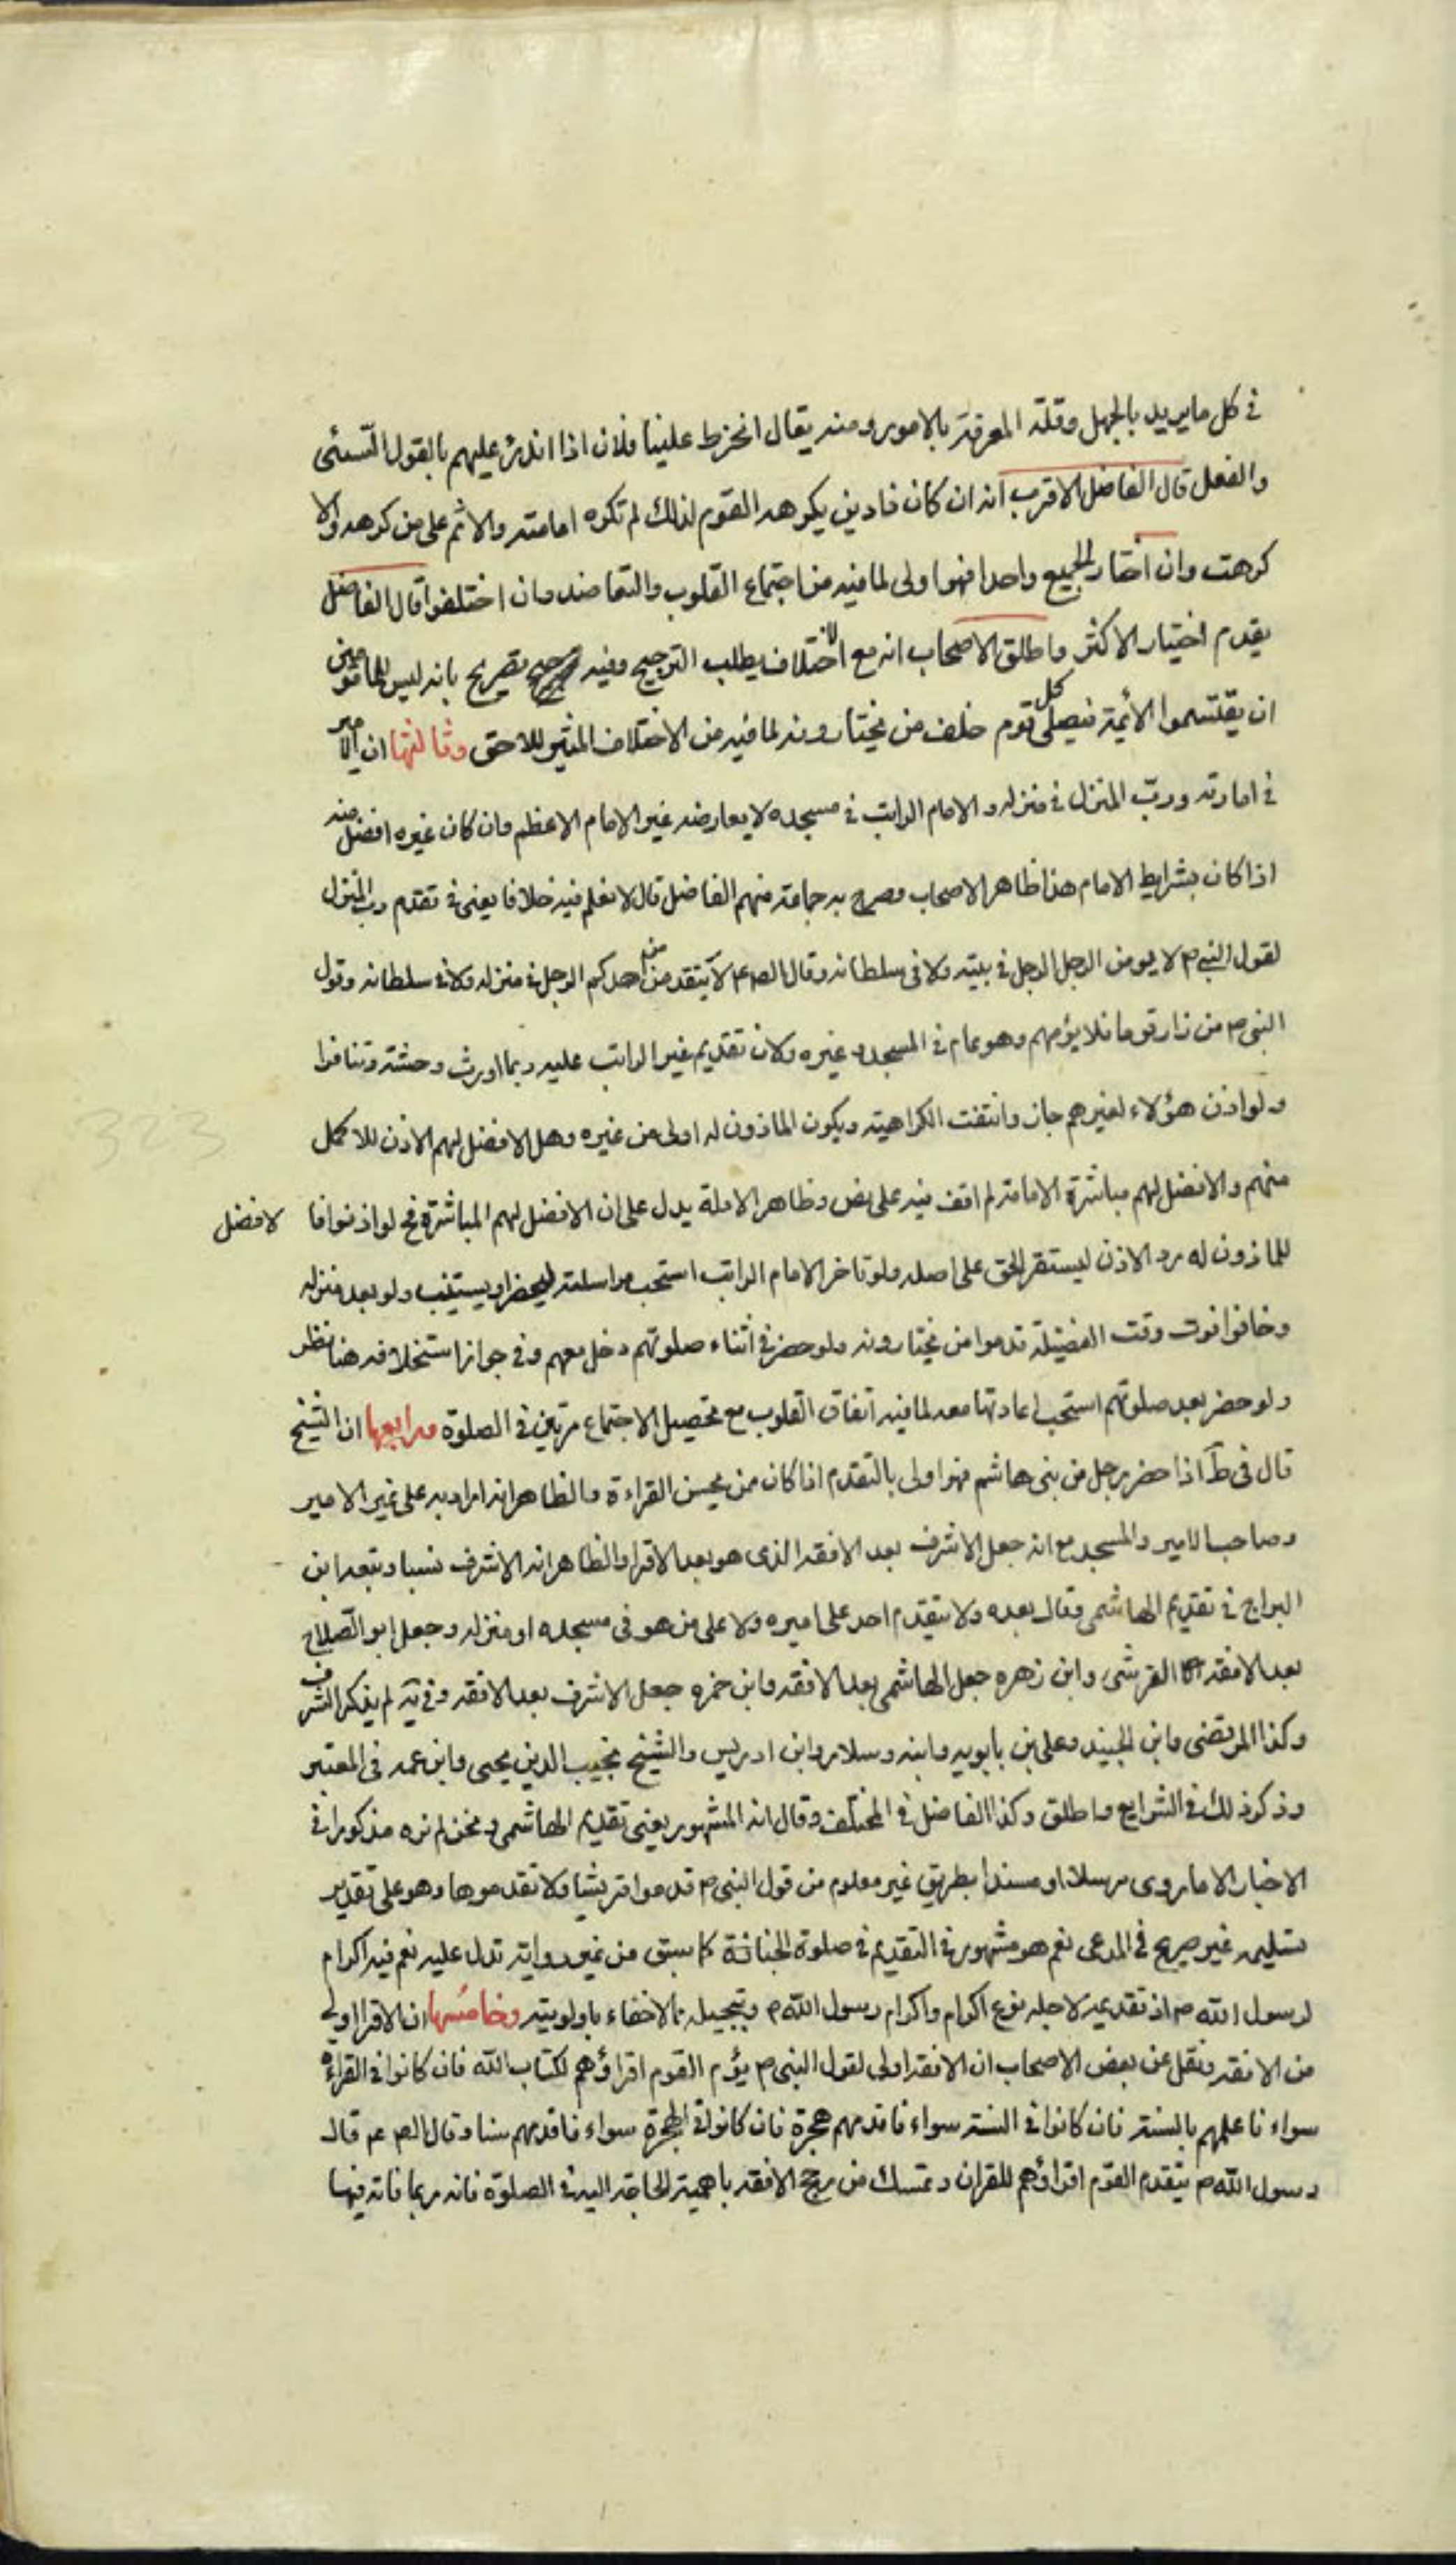 في كل ما يريد بالجهل وقلة المعرفة بالامور ومنه يقال انخرط علينا فلان اذا اندرء عليهم بالقول السئى
والفعل قال الفاضل الاقرب انه ان كان ذا دين يكرهه القوم لذلك لم تكره امامته والاثم على من كرهه والا
كرهت وان اختار الجميع واحدا فهو اولى لما فيه من اجتماع القلوب والتعاضد وان اختلفوا قال الفاضل
يقدم اختيار الاكثر واطلق الاصحاب انه مع الاختلاف يطلب الترجيح وفيه تصريح بانه ليس للمامومين
ان يقتسموا الأئمة فيصلى كل قوم خلف من يختارونه لما فيه من الاختلاف المثير للاحن وثالثها ان الامير
في امارته ورب المنزل في منزله والامام الراتب في مسجده لا يعارضه غير الامام الاعظم وان كان غيره افضل منه
اذا كان بشرايط الامام هذا ظاهر الاصحاب وصرح به جماعة منهم الفاضل قال لا نعلم فيه خلافا يعنى في تقدم رب المنزل
لقول النبي ص لا يومن الرجل الرجل في بيته ولا في سلطانه وقال الص ع لا يتقدمن احدكم الرجل في منزله ولا في سلطانه وقول
النبي ص من زار قوما فلا يؤمهم وهو عام في المسجد وغيره ولان تقديم غير الراتب عليه ربما اورث وحشة وتنافرا
ولو اذن هؤلاء لغيرهم جاز وانتفت الكراهية ويكون الماذون له اولى من غيره وهل الافضل لهم الاذن للاكمل
منهم والافضل لهم مباشرة الامامة لم اقف فيه على نص وظاهر الادلة يدل على ان الافضل لهم المباشرة فح لو اذنوا فا لافضل
للماذون له رد الاذن ليستقر الحق على اصله ولو تاخر الامام الراتب استحب مراسلته ليحضر او يستنيب ولو بعد منزله
وخافوا فوت وقت الفضيلة قدموا من يختارونه ولو حضر في أثناء صلوتهم دخل معهم وفي جواز استخلافه هنا نظر
ولو حضر بعد صلوتهم استحب اعادتها معه لما فيه اتفاق القلوب مع تحصيل الاجتماع مرتين في الصلوة ورابعها ان الشيخ
قال في ط اذا حضر رجل من بنى هاشم فهو اولى بالتقدم اذا كان ممن يحسن القراءة والظاهر انه اراد به على غير الامير
وصاحب الامير والمسجد مع انه جعل الاشرف بعد الافقه الذى هو بعد الاقرا والظاهر انه الاشرف نسبا وتبعه ابن
البراج في تقديم الهاشمى وقال بعده ولا يتقدم احد على اميره ولا على من هو في مسجده او منزله وجعل ابو الصلاح
بعد الافقه القرشى وابن زهره جعل الهاشمى بعد الافقه وابن حمزه جعل الاشرف بعد الافقه وفي يه لم يذكر الشرف
وكذا المرتضى وابن الجنيد وعلى بن بابويه وابنه وسلار وابن ادريس والشيخ نجيب الدين يحيى وابن عمه في المعتبر
وذكر ذلك في الشرايع واطلق وكذا الفاضل في المختلف وقال انه المشهور يعنى تقديم الهاشمى ونحن لم نره مذكورا في
الاخبار الا ما روى مرسلا او مسندا بطريق غير معلوم من قول النبي ص قدموا قريشا ولا تقدموها وهو على تقدير
تسليمه غير صريح في المدعى نعم هو مشهور في التقديم في صلوة الجنازة كما سبق من غير رواية تدل عليه نعم فيه اكرام
لرسول الله ص اذ تقديمه لاجله نوع اكرام واكرام رسول الله ص وتبجيله مما لا خفاء باولويته وخامسها ان الاقرا اولى
من الافقه ونقل عن بعض الاصحاب ان الافقه اولى لقول النبي ص يؤم القوم اقراؤهم لكتاب الله فان كانوا في القراءة
سواء فاعلمهم بالسنة فان كانوا في السنة سواء فاقدمهم هجرة فان كانوا في الهجرة سواء فاقدمهم سنا وقال الص ع قال
رسول الله ص يتقدم القوم اقراؤهم للقران وتمسك من رجح الافقه باهمية الحاجة اليه في الصلوة فانه ربما فاته فيها